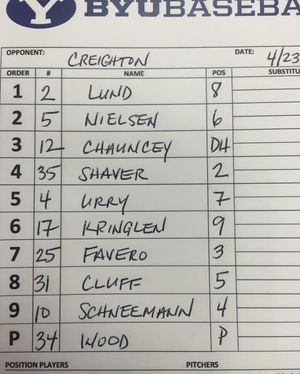 Y BYUBASEBA
OPPONENT: CREIGHTON DATE: 4/23
ORDER # NAME POS SUBSTITU
1 2 LUND 8
2 5 NIELSEN 6
3 12 CHAUNCEY DH
4 35 SHAVER 2
5 4 URRY 7
6 17 KRINGLEN 9
7 25 FAVERO 3
8 31 CLUFF 5
9 10 SCHNEEMANN 4
P 34 WOOD P
POSITION PLAYERS PITCHERS